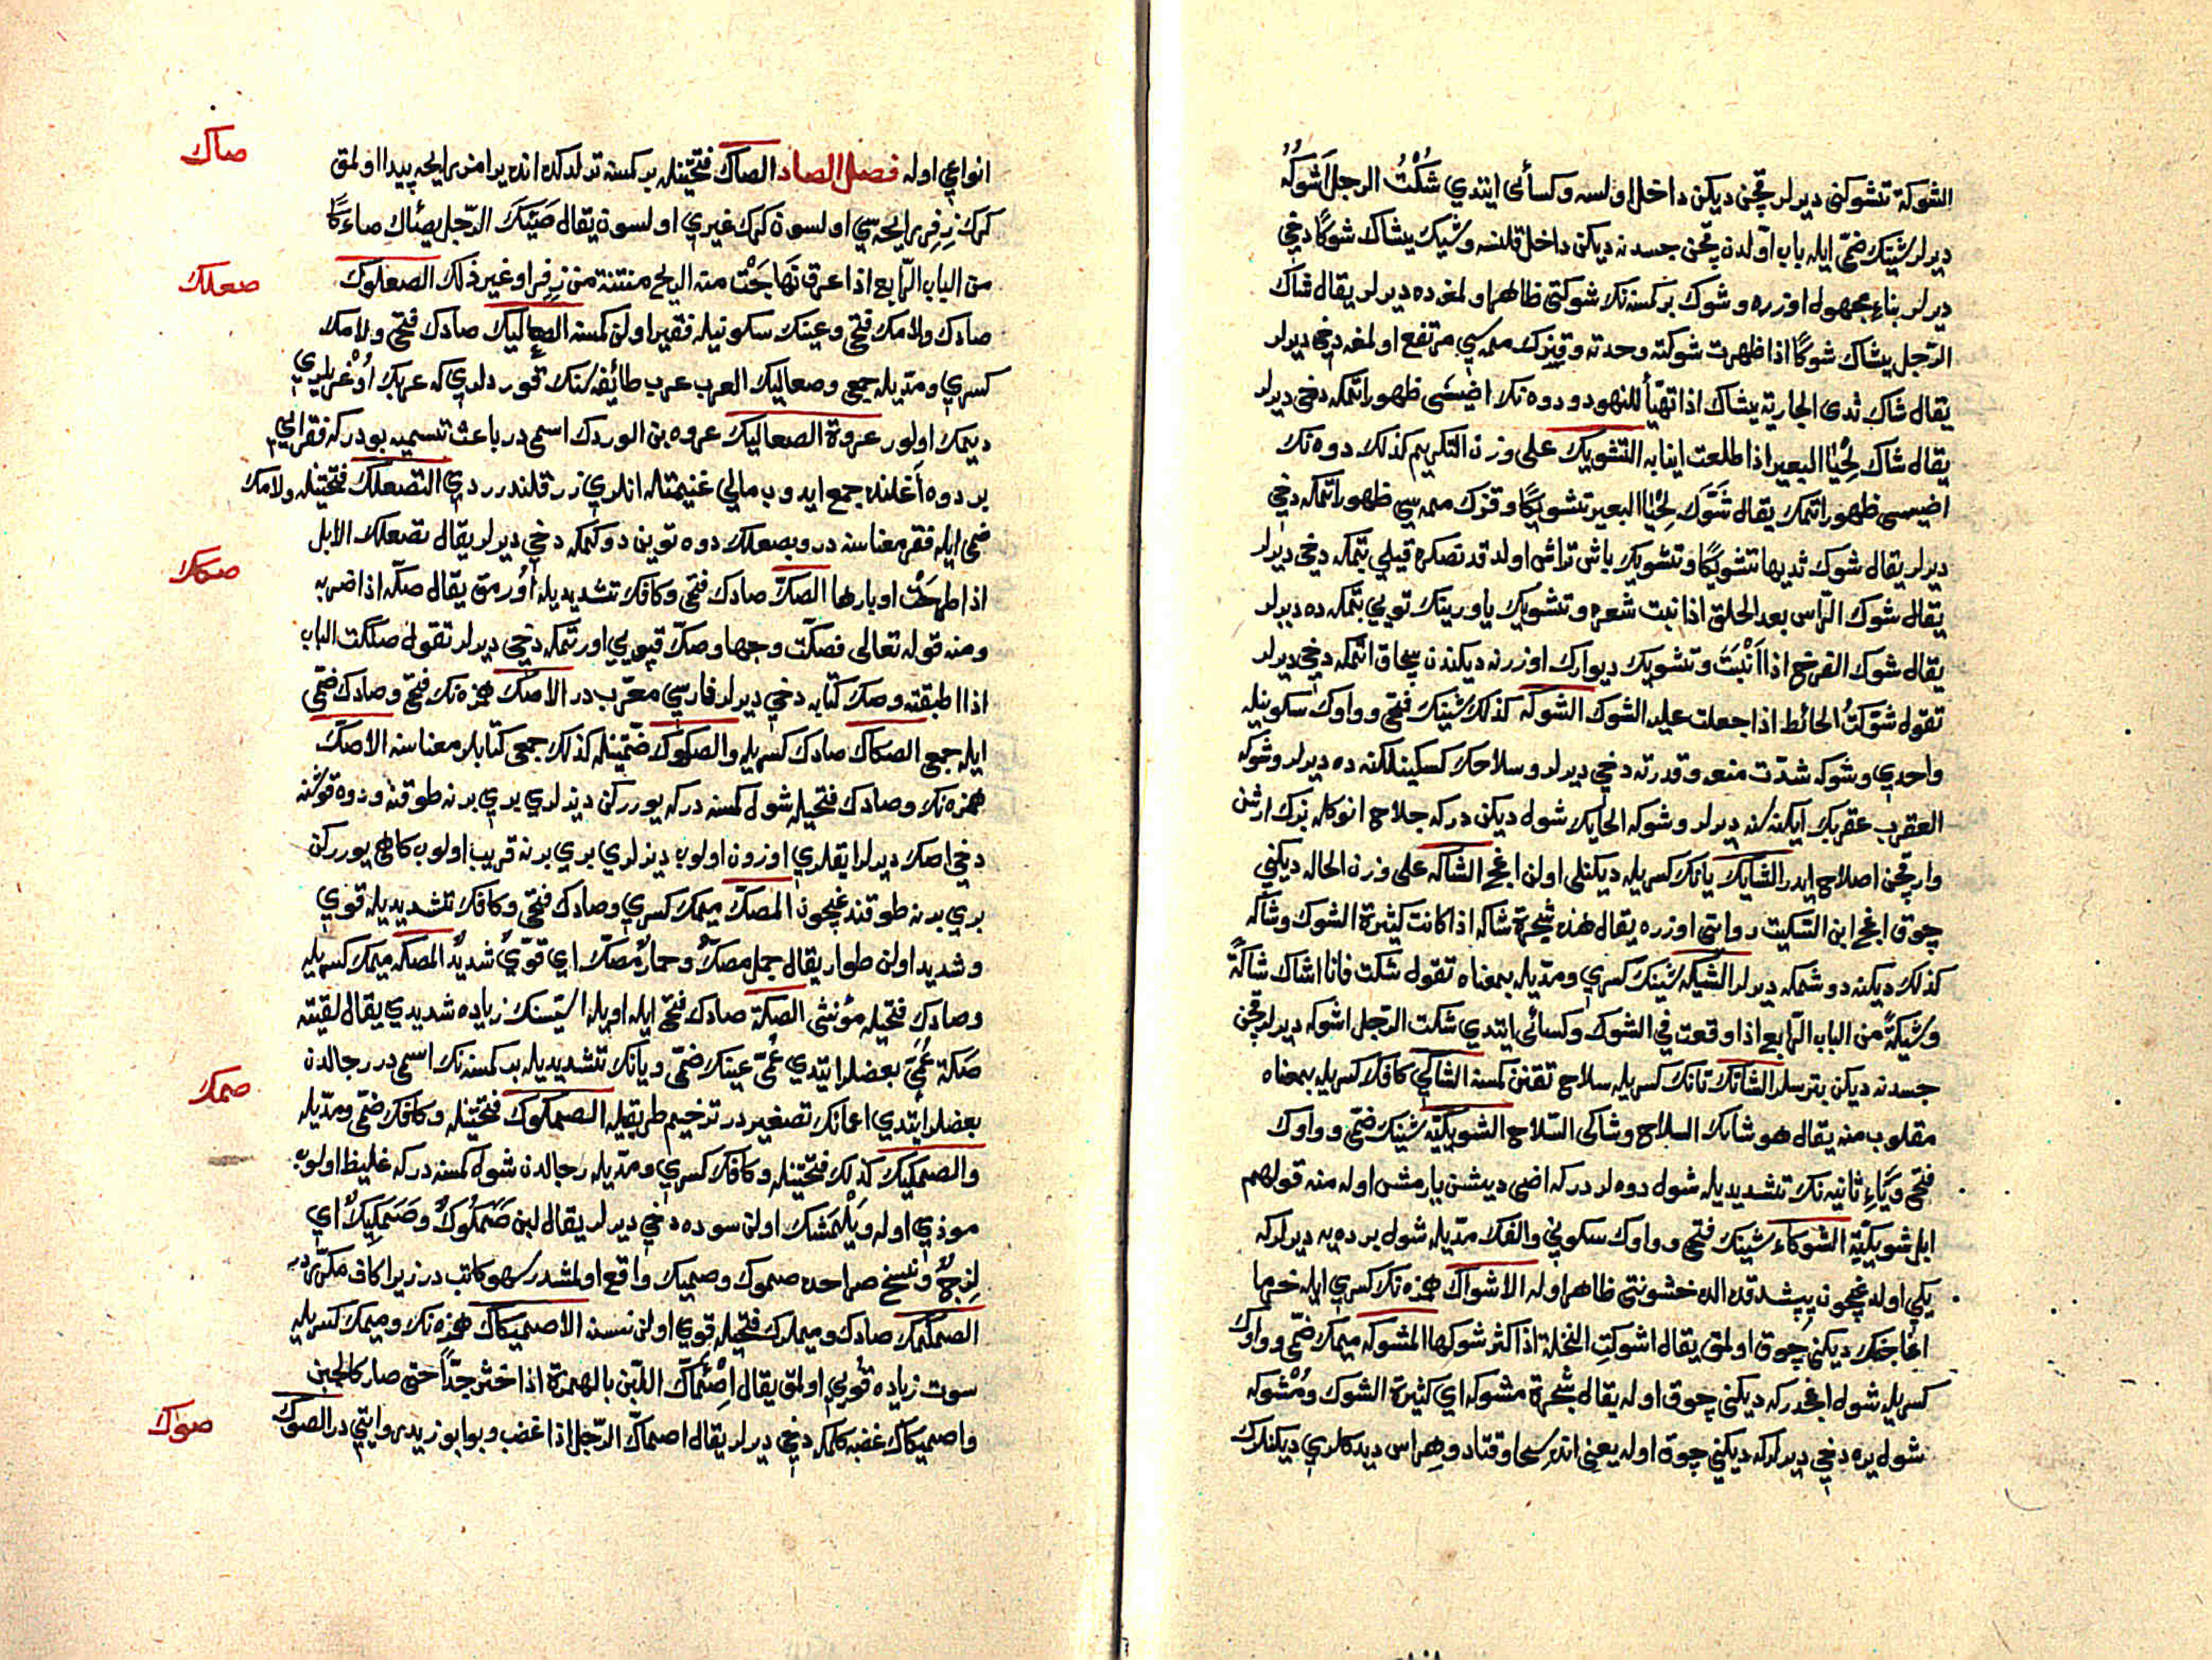 الشوكة تشوكنى ديرلر قچن ديكن داخل اولسه وكسائى ايتدي شُكْتُ الرجل اَشُوكُهُ
ديرلر شينك ضمى ايله باب اولدن قچن جسدنه ديكن داخل قلنسه وشيك يشاك شوكًا دخي
ديرلر بناء مجهول اوزره وشوك بر كمسنه نك شوكتى ظاهر اولمغه ده ديرلر يقال شاك
الرّجل يشاك شوكًا اذا ظهرت شوكته وحدته وقيزك ممه سي مرتفع اولمغه دخي ديرلر
يقال شاك ثدى الجارية يشاك اذا تهيّأ للنهود ودوه نك اضيسى ظهور اتمكه دخي ديرلر
يقال شاك لحْيَا البعير اذا طلعت انيابه التشويك على وزن التكريم كذلك دوه نك
اضيسى ظهور اتمك يقال شَوَّكَ لحْيَا البعير تشويكًا وقزك ممه سي ظهور اتمكه دخي
ديرلر يقال شوك ثديها تشويكًا وتشويك باش تراش اولدقدنصكره قيلي بتمكه دخي ديرلر
يقال شوك الرّاس بعد الحلق اذا نبت شعره وتشويك ياورينك تويي بتمكه ده ديرلر
يقال شوك الفرخ اذا اَنْبَتَ وتشويك ديوارك اوزرنه ديكندن پچاق اتمكه دخي ديرلر
تقول شوّكتُ الحائط اذا جعلت عليه الشوك الشوكه كذلك شينك فتحى وواوك سكونيله
واحدي وشوكه شدّت منعه وقدرته دخي ديرلر وسلاحك كسكينلكنه ده ديرلر وشوكه
العقرب عقربك ايكنه سنه ديرلر وشوكه الحايك شول ديكن دركه جلاح انوكله بزك ارشن
وارقچن اصلاح ايدر الشايك يانك كسريله ديكنلى اولن اغج الشاكه على وزن الحاله ديكني
چوق اغج ابن السّكيت روايتى اوزره يقال هذه شجرة شاكه اذا كانت كثيرة الشوك وشاكه
كذلك ديكنه دوشمكه ديرلر الشيكه شينك كسري ومدّيله بمعناه تقول شكت فانا اشاك شاكةً
وشيكةً من الباب الرّابع اذا وقعت في الشوك وكسائى ايتدي شكت الرّجل اشوكه ديرلر قچن
جسدنه ديكن بترسلر الشائك تانك كسريله سلاح تقنن كمسنه الشاكي كافك كسريله بمعناه
مقلوب منه يقال هو شائك السلاح وشاكى السّلاح الشويكيّه شينك ضمّى وواوك
فتحى ويَاءِ ثانيه نك تشديديله شول دوه لر دركه اضى ديشن يارمش اوله منه قولهم
ابل شويكيّة الشوكاء شينك فتحى وواوك سكوني والفك مدّيله شول برده يه ديرلركه
يكي اولدغچون پيشدقده الده خشونتى ظاهر اوله الاشواك همزه نك كسري ايله خرما
اغاجنك ديكنى چوق اولمق يقال اشوكتِ النخلة اذا كثر شوكها المشوكه ميمك ضمّى وواوك
كسريله شول اغجدركه ديكنى چوق اوله يقال شجرة مشوكه اي كثيرة الشوك ومُشْوكه
شول يره دخي ديرلركه ديكني چوق اوله يعني انده سحا وقتاد وهراس ديدكلري ديكنلرك
انواعي اوله فصل الصاد الصاك فتحتينله بر كمسنه ترلدكده انده يرامز رايحه پيدا اولمق
كرك زفر رايحه سي اولسون كرك غيري اولسون يقال صَئِكَ الرّجل يصئاك صاءكًا
من الباب الرّابع اذا عرق فهاجَتْ منه الريح منتنة من زفر او غير ذلك الصعلوك
صادك ولامك فتحى وعينك سكونيله فقير اولن كمسنه الصعاليك صادك فتحى ولامك
كسري ومدّيله جمعى وصعاليك العرب عرب طائفه سنك قوردلري كه عربك اُوغريلري
ديمك اولور عروة الصعاليك عروه بن الوردك اسمى در باعث تسميه بودركه فقرايى
بر دوه اغلنده جمع ايدوب مالي غنيمتله انلري رزقلندررديي التصعلك فتحتينله ولامك
ضمى ايله فقر معناسنه در وتصعلك دوه تويين دوكمكه دخي ديرلر يقال تصعلك الابل
اذا طرحَتْ اوبارها الصكّ صادك فتحى وكافك تشديديله اُورمق يقال صكّه اذا ضربه
ومنه قوله تعالى فصكّت وجهها وصكّ قپويي اورتمكه دخي ديرلر تقول صككت الباب
اذا اطبقته وصكّ كتابه دخي ديرلر فارسي معرّب در الاصك همزه نك فتحى وصادك ضمّى
ايله جمعى الصكاك صادك كسريله والصكوك ضمّتينله كذلك جمعى كتابلر معناسنه الاصكّ
همزه نك وصادك فتحيله شول كمسنه دركه يوررکن ديزلري بري برنه طوقنه ودوه قوشنه
دخي اصك ديرلر ايقلري اوزون اولوب ديزلري بري برنه قريب اولوب كاهى يوررکن
بري برنه طوقندغچون المصكّ ميمك كسري وصادك فتحى وكافك تشديديله قوي
وشديد اولن طوار يقال جمل مصكّ وحمار مصكّ اي قويّ شديدٌ المصكه ميمك كسريله
وصادك فتحيله مؤنثى الصكة صادك فتحى ايله اويله استسنك زياده شديدي يقال لقيته
صَكّة عُمَيّ بعضلر ايتدي عُمَىّ عينك ضمّى ويانك تشديديله بر كمسنه نك اسمى در رجالدن
بعضلر ايتدي اعمانك تصغيردر ترخيم طريقيله الصمكوك فتحتينله وكافك ضمّى ومدّيله
والصمكيك كذلك فتحتينله وكافك كسري ومدّيله رجالدن شول كمسنه دركه غليظ اولوب
موذي اوله ويَلْمَشك اولن سوده دخي ديرلر يقال لبن صَمَكُوكٌ وصَمَكِيكٌ اي
لزجٌ ونسخ صراحده صموك وصميك واقع اولمشدر سهو كاتب در زيرا كاف مكرّردر
الصمكمك صادك وميملرك فتحيله قوي اولن نسنه الاصميكاك همزه نك وميمك كسريله
سوت زياده قويى اولمق يقال اِصْمَأَكَّ اللبن بالهمزة اذا خثر جدّاً حتى صار كالجبن
واصميكاك غضبه كلمكه دخي ديرلر يقال اصماكّ الرّجل اذا غضب وبو ابو زيد روايتي در الصوك
صاك
صعلك
صكك
صمك
صوك